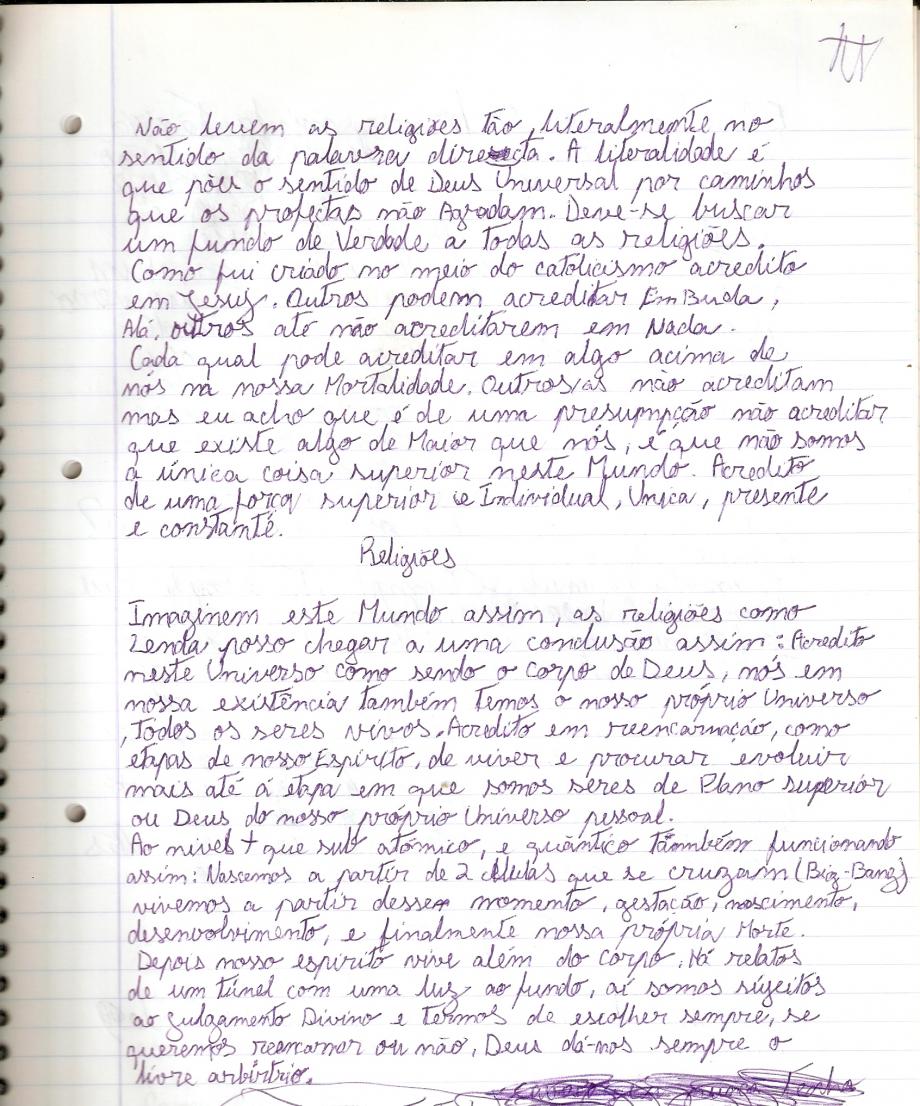 Não levem as religiões tão, literalmente no
sentido da palavra directa. A literalidade é
que põe o sentido de Deus Universal por caminhos
que os profectas não Agradam. Deve-se buscar
um fundo de Verdade a Todas as religiões.
Como fui criado no meio do catolicismo acredito
em Jesuz. Outros podem acreditar Em Buda,
Alá, outros até não acreditarem em Nada.
Cada qual pode acreditar em algo acima de
nós na nossa Mortalidade. Outros/as não acreditam
mas eu acho que é de uma presumpção não acreditar
que existe algo de Maior que nós, é que não somos
a única coisa superior neste Mundo. Acredito
de uma força superior e Individual, Unica, presente
e constante.
Religiões
Imaginem este Mundo assim, as religiões como
Lenda posso chegar a uma conclusão assim: Acredito
neste Universo como sendo o corpo de Deus, nós em
nossa existência também Temos o nosso próprio Universo
, Todos os seres vivos. Acredito em reencarnação, como
etapas de nosso Espírito, de viver e procurar evoluir
mais até á etapa em que somos seres de Plano superior
ou Deus do nosso próprio Universo pessoal.
Ao nivel + que sub atómico, e quântico também funcionando
assim: Nascemos a partir de 2 células que se cruzam (Big-Bang)
vivemos a partir desse momento, gestação, nascimento,
desenvolvimento, e finalmente nossa própria Morte.
Depois nosso espirito vive além do corpo. Há relatos
de um túnel com uma luz ao fundo, aí somos sujeitos
ao Julgamento Divino e Termos de escolher sempre, se
queremos reencarnar ou não, Deus dá-nos sempre o
livre arbirtrio.